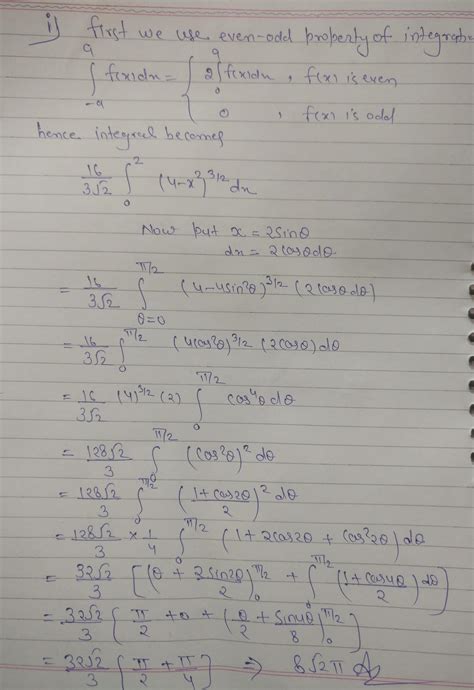 i) first we use even-odd property of integrati
∫_{-a}^{a} f(x)dx = { 2∫_0^a f(x)dx , f(x) is even
0 , f(x) is odd
hence integral becomes
16/3√2 ∫_0^2 (4-x²)^{3/2} dx
Now put x = 2sinθ
dx = 2cosθdθ
= 16/3√2 ∫_{θ=0}^{π/2} (4-4sin²θ)^{3/2} (2cosθdθ)
= 16/3√2 ∫_0^{π/2} (4cos²θ)^{3/2} (2cosθ)dθ
= 16/3√2 (4)^{3/2} (2) ∫_0^{π/2} cos⁴θdθ
= 128√2/3 ∫_0^{π/2} (cos²θ)² dθ
= 128√2/3 ∫_0^{π/2} (1+cos2θ/2)² dθ
= 128√2/3 × 1/4 ∫_0^{π/2} (1+2cos2θ + cos²2θ)dθ
= 32√2/3 [(θ + 2sin2θ/2)_0^{π/2} + ∫_0^{π/2} (1+cos4θ/2)dθ]
= 32√2/3 [π/2 + 0 + (θ/2 + sin4θ/8)_0^{π/2}]
= 32√2/3 [π/2 + π/4] ⇒ 8√2π